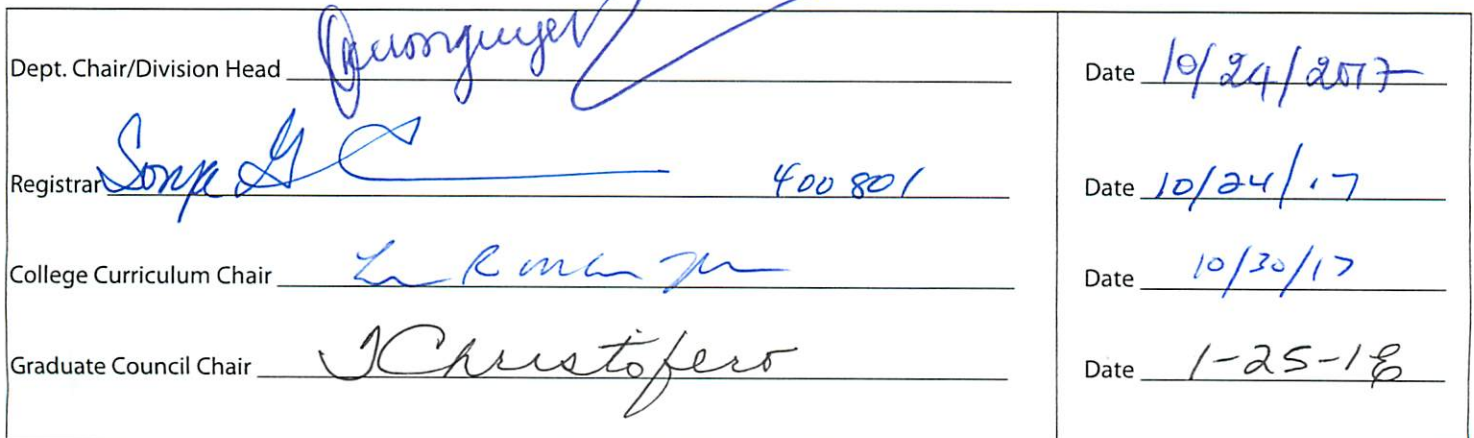 Dept. Chair/Division Head Date 10/24/2017
Registrar Sonja G C 400801 Date 10/24/17
College Curriculum Chair Date 10/30/17
Graduate Council Chair TChristofero Date 1-25-18